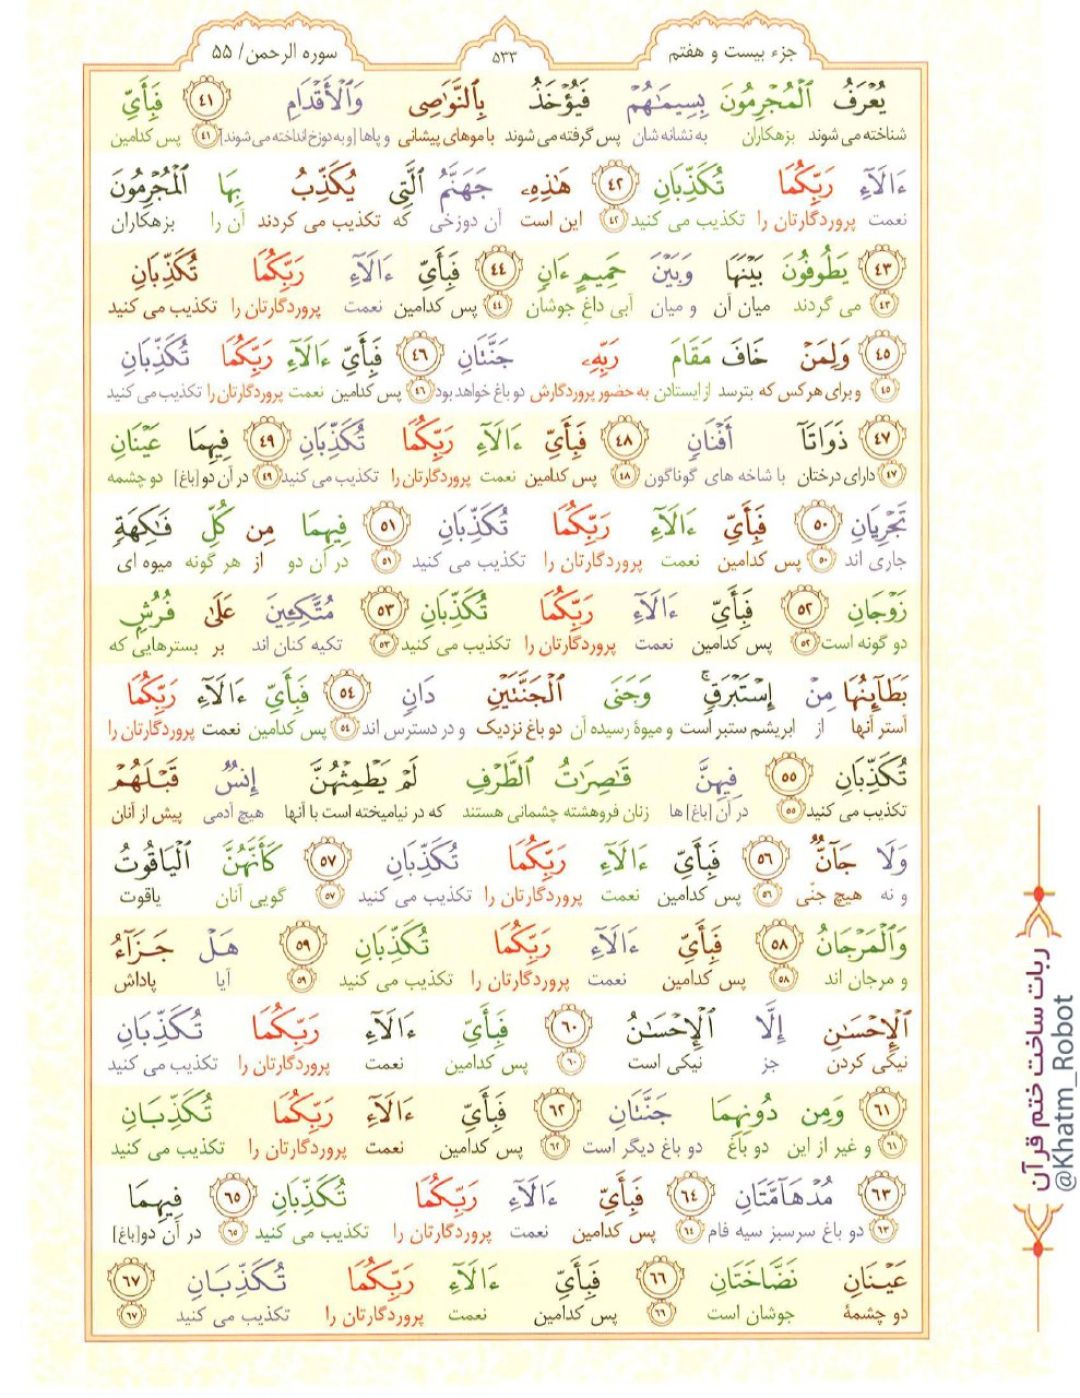 جزء بیست و هفتم
۵۳۳
سوره الرحمن/ ۵۵
يُعْرَفُ ٱلْمُجْرِمُونَ بِسِيمَـٰهُمْ فَيُؤْخَذُ بِٱلنَّوَٰصِى وَٱلْأَقْدَامِ ٤١ فَبِأَىِّ
شناخته می شوند بزهکاران به نشانه شان پس گرفته می شوند با موهای پیشانی و پاها [و به دوزخ انداخته می شوند] ٤١ پس کدامین
ءَالَآءِ رَبِّكُمَا تُكَذِّبَانِ ٤٢ هَـٰذِهِۦ جَهَنَّمُ ٱلَّتِى يُكَذِّبُ بِهَا ٱلْمُجْرِمُونَ
نعمت پروردگارتان را تکذیب می کنید ٤٢ این است آن دوزخی که تکذیب می کردند آن را بزهکاران
٤٣ يَطُوفُونَ بَيْنَهَا وَبَيْنَ حَمِيمٍ ءَانٍ ٤٤ فَبِأَىِّ ءَالَآءِ رَبِّكُمَا تُكَذِّبَانِ
٤٣ می گردند میان آن و میان آبی داغ جوشان ٤٤ پس کدامین نعمت پروردگارتان را تکذیب می کنید
٤٥ وَلِمَنْ خَافَ مَقَامَ رَبِّهِۦ جَنَّتَانِ ٤٦ فَبِأَىِّ ءَالَآءِ رَبِّكُمَا تُكَذِّبَانِ
٤٥ و برای هر کس که بترسد از ایستادن به حضور پروردگارش دو باغ خواهد بود ٤٦ پس کدامین نعمت پروردگارتان را تکذیب می کنید
٤٧ ذَوَاتَآ أَفْنَانٍ ٤٨ فَبِأَىِّ ءَالَآءِ رَبِّكُمَا تُكَذِّبَانِ ٤٩ فِيهِمَا عَيْنَانِ
٤٧ دارای درختان با شاخه های گوناگون ٤٨ پس کدامین نعمت پروردگارتان را تکذیب می کنید ٤٩ در آن دو [باغ] دو چشمه
تَجْرِيَانِ ٥٠ فَبِأَىِّ ءَالَآءِ رَبِّكُمَا تُكَذِّبَانِ ٥١ فِيهِمَا مِن كُلِّ فَـٰكِهَةٍ
جاری اند ٥٠ پس کدامین نعمت پروردگارتان را تکذیب می کنید ٥١ در آن دو از هر گونه میوه ای
زَوْجَانِ ٥٢ فَبِأَىِّ ءَالَآءِ رَبِّكُمَا تُكَذِّبَانِ ٥٣ مُتَّكِـِٔينَ عَلَىٰ فُرُشٍۭ
دو گونه است ٥٢ پس کدامین نعمت پروردگارتان را تکذیب می کنید ٥٣ تکیه کنان اند بر بسترهایی که
بَطَآئِنُهَا مِنْ إِسْتَبْرَقٍ ۚ وَجَنَى ٱلْجَنَّتَيْنِ دَانٍ ٥٤ فَبِأَىِّ ءَالَآءِ رَبِّكُمَا
آستر آنها از ابریشم ستبر است و میوهٔ رسیده آن دو باغ نزدیک و در دسترس اند ٥٤ پس کدامین نعمت پروردگارتان را
تُكَذِّبَانِ ٥٥ فِيهِنَّ قَـٰصِرَٰتُ ٱلطَّرْفِ لَمْ يَطْمِثْهُنَّ إِنسٌ قَبْلَهُمْ
تکذیب می کنید ٥٥ در آن [باغ] ها زنان فروهشته چشمانی هستند که در نیامیخته است با آنها هیچ آدمی پیش از آنان
وَلَا جَآنٌّ ٥٦ فَبِأَىِّ ءَالَآءِ رَبِّكُمَا تُكَذِّبَانِ ٥٧ كَأَنَّهُنَّ ٱلْيَاقُوتُ
و نه هیچ جنّی ٥٦ پس کدامین نعمت پروردگارتان را تکذیب می کنید ٥٧ گویی آنان یاقوت
وَٱلْمَرْجَانُ ٥٨ فَبِأَىِّ ءَالَآءِ رَبِّكُمَا تُكَذِّبَانِ ٥٩ هَلْ جَزَآءُ
و مرجان اند ٥٨ پس کدامین نعمت پروردگارتان را تکذیب می کنید ٥٩ آیا پاداش
ٱلْإِحْسَـٰنِ إِلَّا ٱلْإِحْسَـٰنُ ٦٠ فَبِأَىِّ ءَالَآءِ رَبِّكُمَا تُكَذِّبَانِ
نیکی کردن جز نیکی است ٦٠ پس کدامین نعمت پروردگارتان را تکذیب می کنید
٦١ وَمِن دُونِهِمَا جَنَّتَانِ ٦٢ فَبِأَىِّ ءَالَآءِ رَبِّكُمَا تُكَذِّبَانِ
٦١ و غیر از این دو باغ دو باغ دیگر است ٦٢ پس کدامین نعمت پروردگارتان را تکذیب می کنید
٦٣ مُدْهَآمَّتَانِ ٦٤ فَبِأَىِّ ءَالَآءِ رَبِّكُمَا تُكَذِّبَانِ ٦٥ فِيهِمَا
٦٣ دو باغ سرسبز سیه فام ٦٤ پس کدامین نعمت پروردگارتان را تکذیب می کنید ٦٥ در آن دو [باغ]
عَيْنَانِ نَضَّاخَتَانِ ٦٦ فَبِأَىِّ ءَالَآءِ رَبِّكُمَا تُكَذِّبَانِ ٦٧
دو چشمهٔ جوشان است ٦٦ پس کدامین نعمت پروردگارتان را تکذیب می کنید ٦٧
ربات ساخت ختم قرآن
@Khatm_Robot